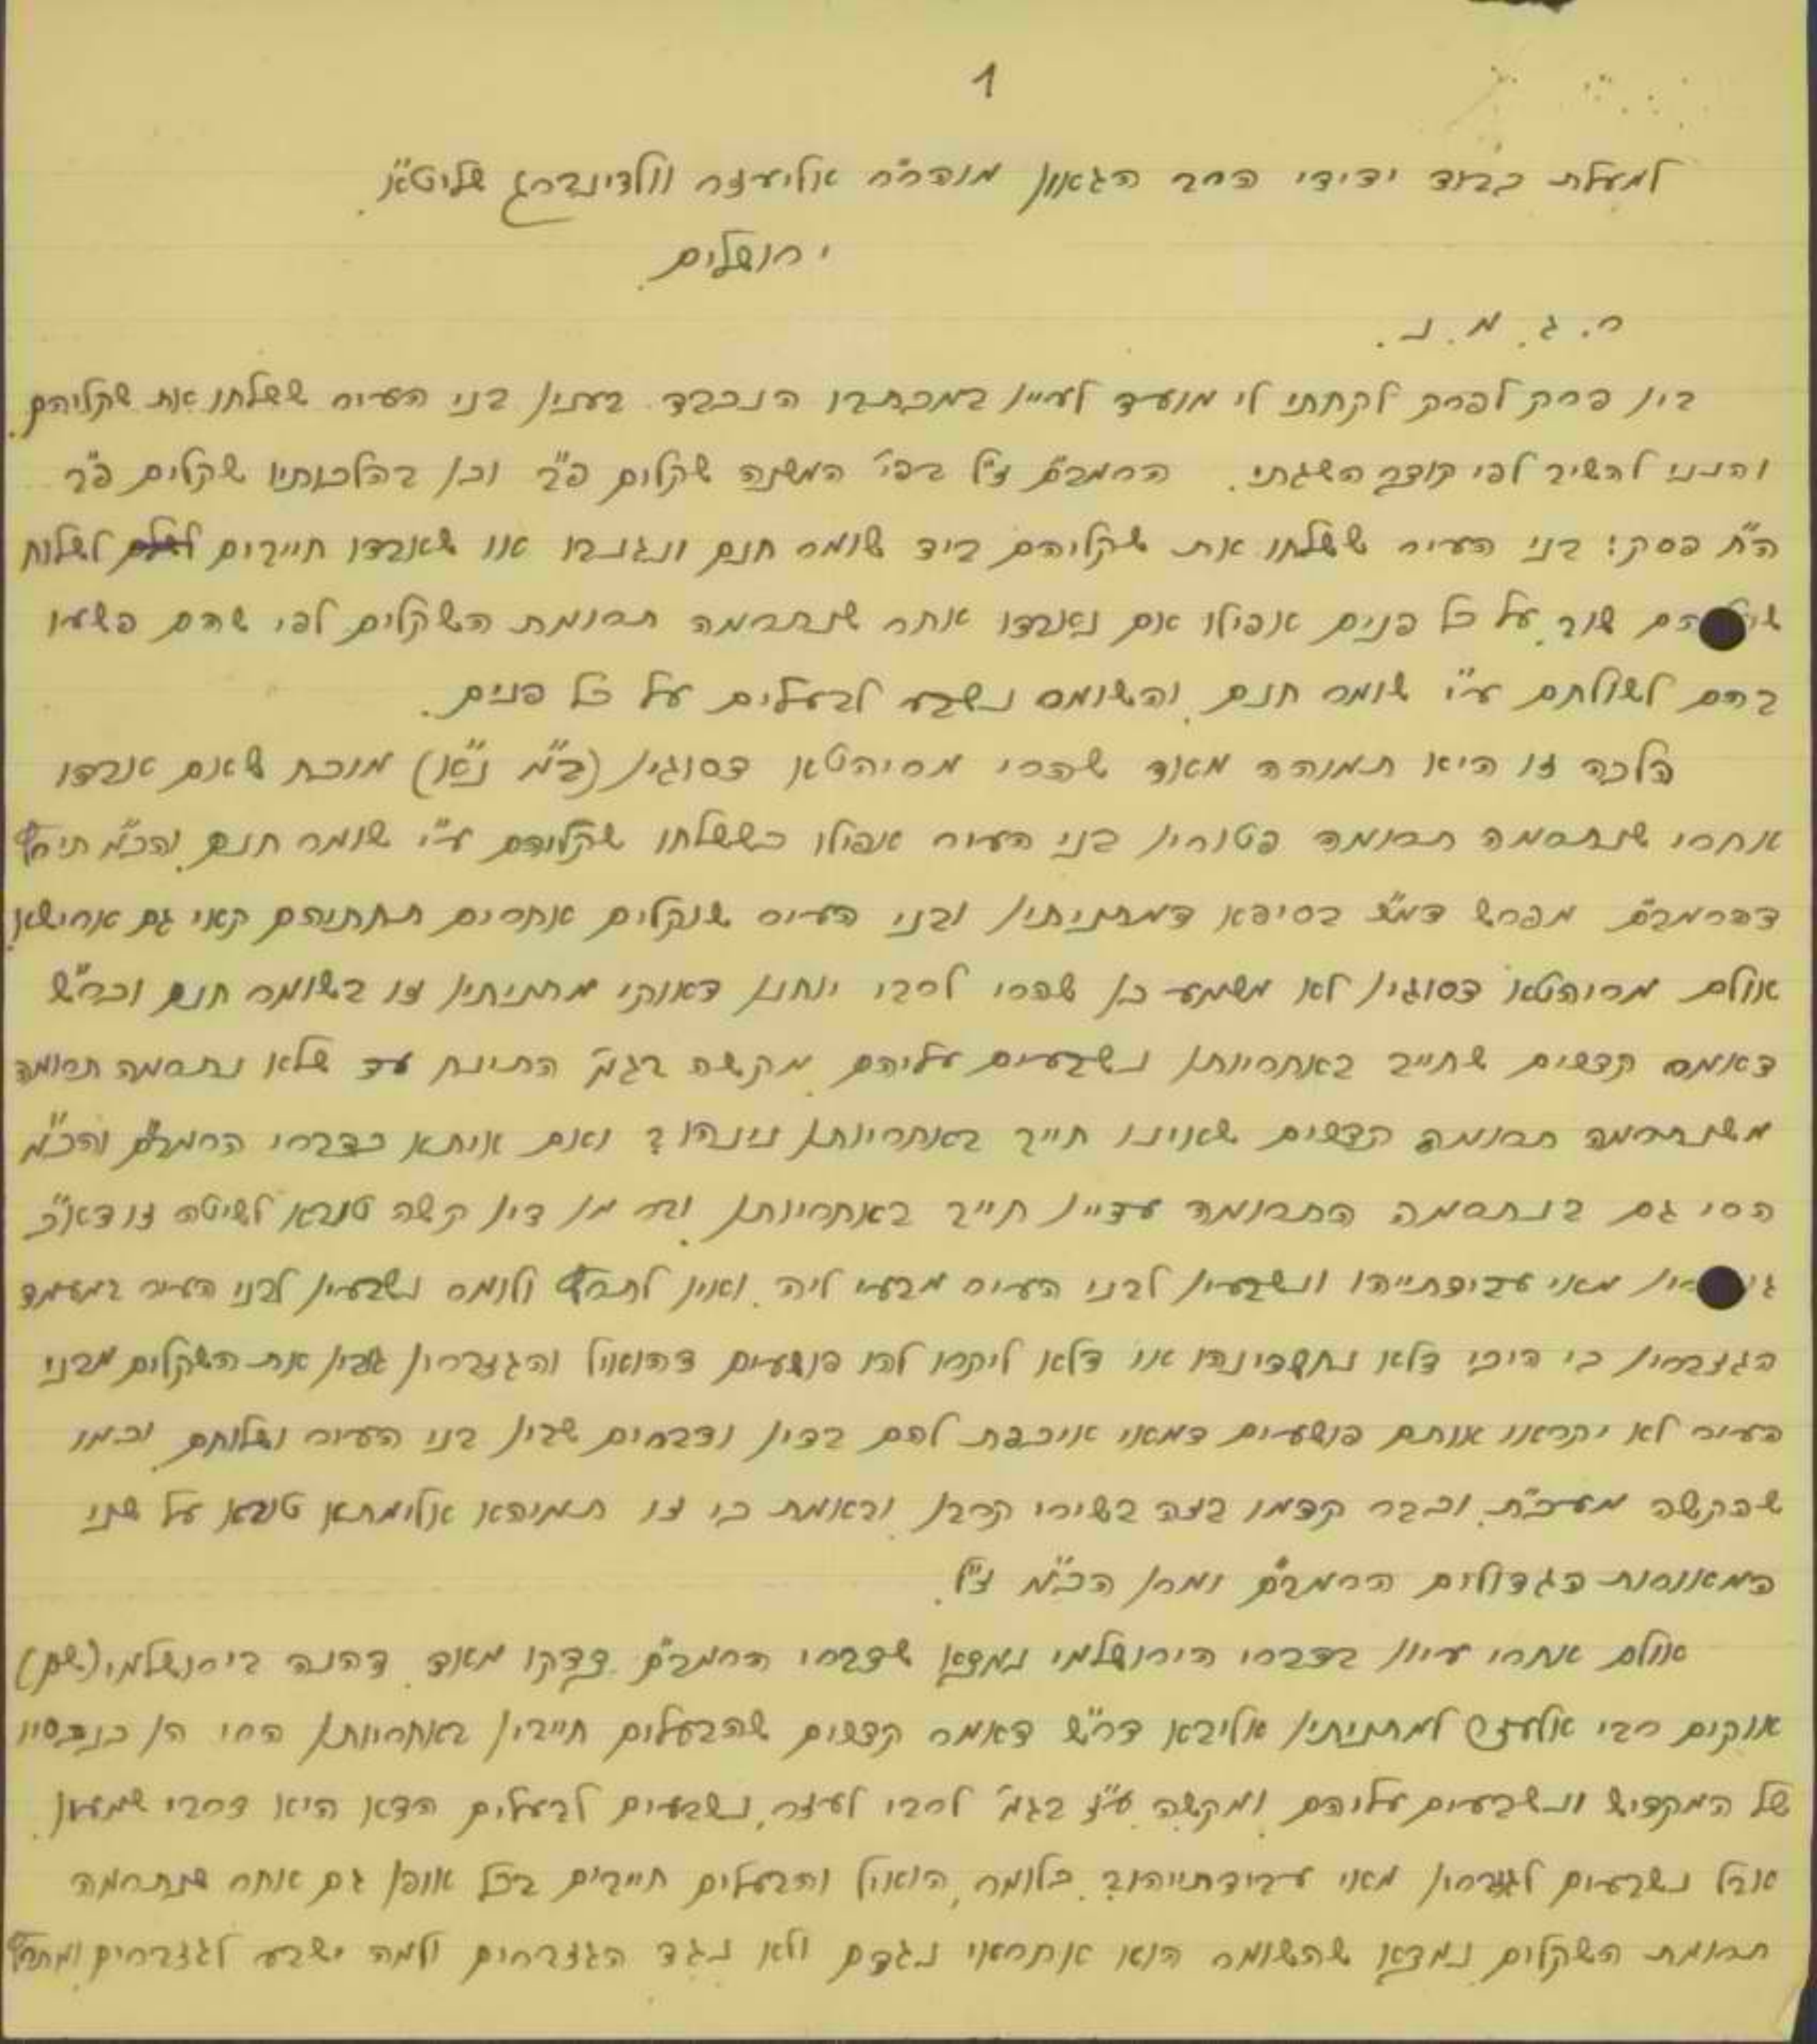 1
למעלת כבוד ידידי הרב הגאון מוהר"ר אליעזר וולדינברג שליט"א.
ירושלים.
ר. ג. מ. נ.
בין פרק לפרק לקחתי לי מועד לעיין במכתבו הנכבד בענין בני העיר ששלחו את שקליהם.
והנני להשיב לפי קוצר השגתי. הרמב"ם ז"ל בפי' המשנה שקלים פ"ב וכן בהלכותיו שקלים פ"ב
ה"ח פסק: בני העיר ששלחו את שקליהם ביד שומר חנם ונגנבו או שאבדו חייבים לשלוח
הם שוב על כל פנים אפילו אם נאבדו אחר שנתרמה תרומת השקלים לפי שהם פשעו
בהם לשולחם ע"י שומר חנם, והשומר נשבע לבעלים על כל פנים.
הלכה זו היא תמוהה מאוד שהרי מסיהטא דסוגין (ב"מ נ"א) מוכח שאם אבדו
אחרי שנתרמה תרומה פטורין בני העיר אפילו כששלחו שקליהם ע"י שומר חנם, והכ"מ תירץ
דהרמב"ם מפרש דמ"ש בסיפא דמתניתין ובני העיר שוקלים אחרים תחתיהם קאי גם ארישא,
אולם מסיהטא דסוגין לא משמע כן שהרי לרבי יוחנן דאוקי מתניתין זו בשומר חנם וכר"ש
דאמר קדשים שחייב באחריותן נשבעים עליהם, מקשה בגמ' התינח עד שלא נתרמה תרומה
משנתרמה תרומה קדשים שאינו חייב באחריותן נינהו? ואם איתא כדברי הרמב"ם והכ"מ
הרי גם בנתרמה התרומה עדיין חייב באחריותן, וכמו כן קשה טובא לשיטה זו דא"כ
מאי עבידתייהו ונשבעין לבני העיר מבעי ליה, ואין לתרץ ולומר נשבעין לבני העיר במעמד
הגזברין כי היכי דלא נחשדינהו או דלא ליקרו להו פושעים דהואיל והגזברין גובין את השקלים מבני
העיר לא יקראו אותם פושעים דמאי איכפת להם בדין ודברים שבין בני העיר ושלוחם, וכמו
שהקשה מעכ"ת, וכבר קדמו בזה בשירי קרבן, ובאמת כי זו תמיהא אלימתא טובא על שני
המאורות הגדולים הרמב"ם ומרן הכ"מ ז"ל.
אולם אחרי עיון בדברי הירושלמי נמצא שדברי הרמב"ם צדקו מאוד, דהנה בירושלמי (שם)
אוקים רבי אלעזר למתניתין אליבא דר"ש דאמר קדשים שהבעלים חייבין באחריותן הרי הן כנכסיו
של המקדיש ונשבעים עליהם, ומקשה ע"ז בגמ' לרבי לעזר, נשבעים לבעלים הדא היא דרבי שמעון,
אבל נשבעים לגזברין מאי עבידתייהו? כלומר, הואיל והבעלים חייבים בכל אופן גם אחר שנתרמה
תרומת השקלים נמצא שהשומר הוא אחראי נגדם ולא נגד הגזברים ולמה ישבע לגזברים, ומתרץ